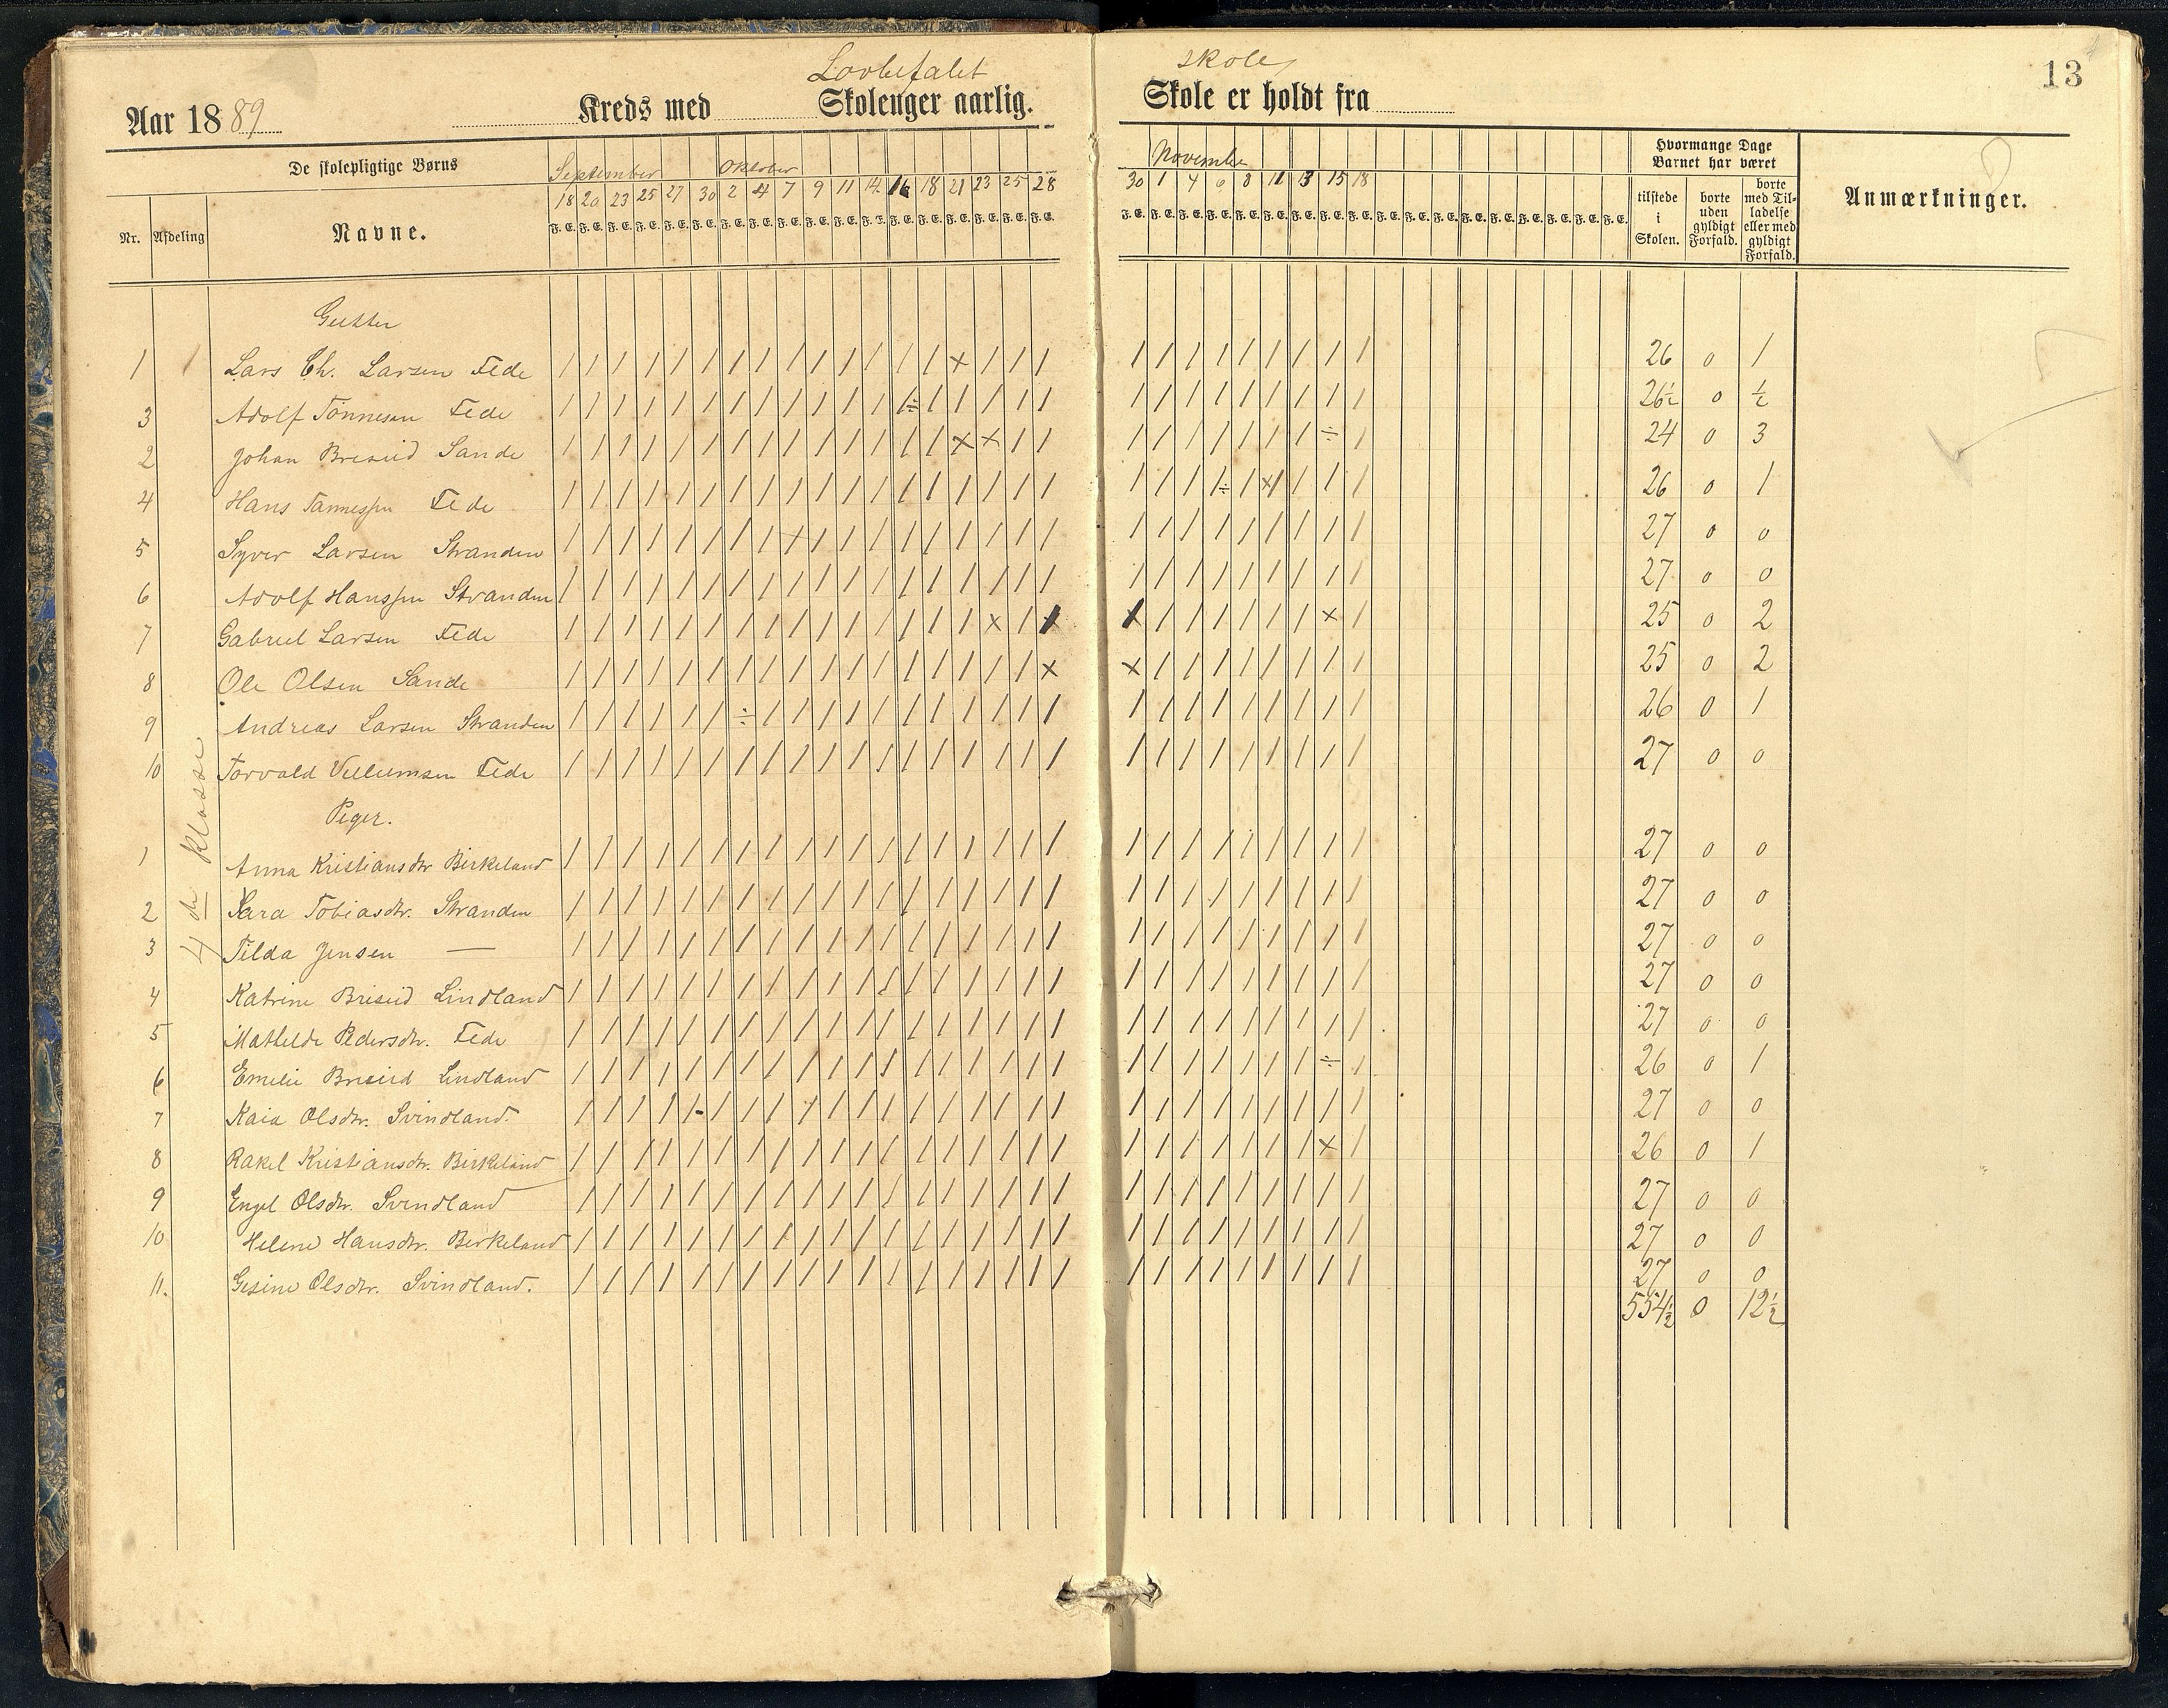 Lovbefalet skole
13
Aar 1889 Kreds med Skoleuger aarlig. Skole er holdt fra
De skolepligtige Børns
Nr. Afdeling Navne.
September Oktober
18 20 23 25 27 30 2 4 7 9 11 14 16 18 21 23 25 28
F. E. F. E. F. E. F. E. F. E. F. E. F. E. F. E. F. E. F. E. F. E. F. E. F. E. F. E. F. E. F. E. F. E. F. E.
November
30 1 4 6 8 11 13 15 18
F. E. F. E. F. E. F. E. F. E. F. E. F. E. F. E. F. E. F. E. F. E. F. E. F. E. F. E. F. E. F. E. F. E. F. E.
Hvormange Dage
Barnet har været
tilstede
i
Skolen.
borte
uden
gyldigt
Forfald.
borte
med Til-
ladelse
eller med
gyldigt
Forfald.
Anmærkninger.
Gutter
1 1 Lars Ch. Larsen Fede 26 0 1
3 Adolf Tønnesen Fede 26½ 0 ½
2 Johan Breiseid Sande 24 0 3
4 Hans Tønnessen Fede 26 0 1
5 Syver Larsen Stranden 27 0 0
6 Adolf Hanssen Stranden 27 0 0
7 Gabriel Larsen Fede 25 0 2
8 Ole Olsen Sande 25 0 2
9 Andreas Larsen Stranden 26 0 1
10 Torvald Villumsen Fede 27 0 0
4de Klasse
Piger.
1 Anna Kristiansdtr Birkeland 27 0 0
2 Sara Tobiasdtr. Stranden 27 0 0
3 Tilda Jensen — 27 0 0
4 Katrine Briseid Lindland 27 0 0
5 Mathilde Pedersdtr. Fede 27 0 0
6 Emilie Briseid Lindland 26 0 1
7 Kaia Olsdtr. Svindland. 27 0 0
8 Rakel Kristiansdtr. Birkeland 26 0 1
9 Engel Olsdtr. Svindland 27 0 0
10 Helene Hansdtr. Birkeland 27 0 0
11. Gesine Olsdtr. Svindland. 27 0 0
554½ 0 12½